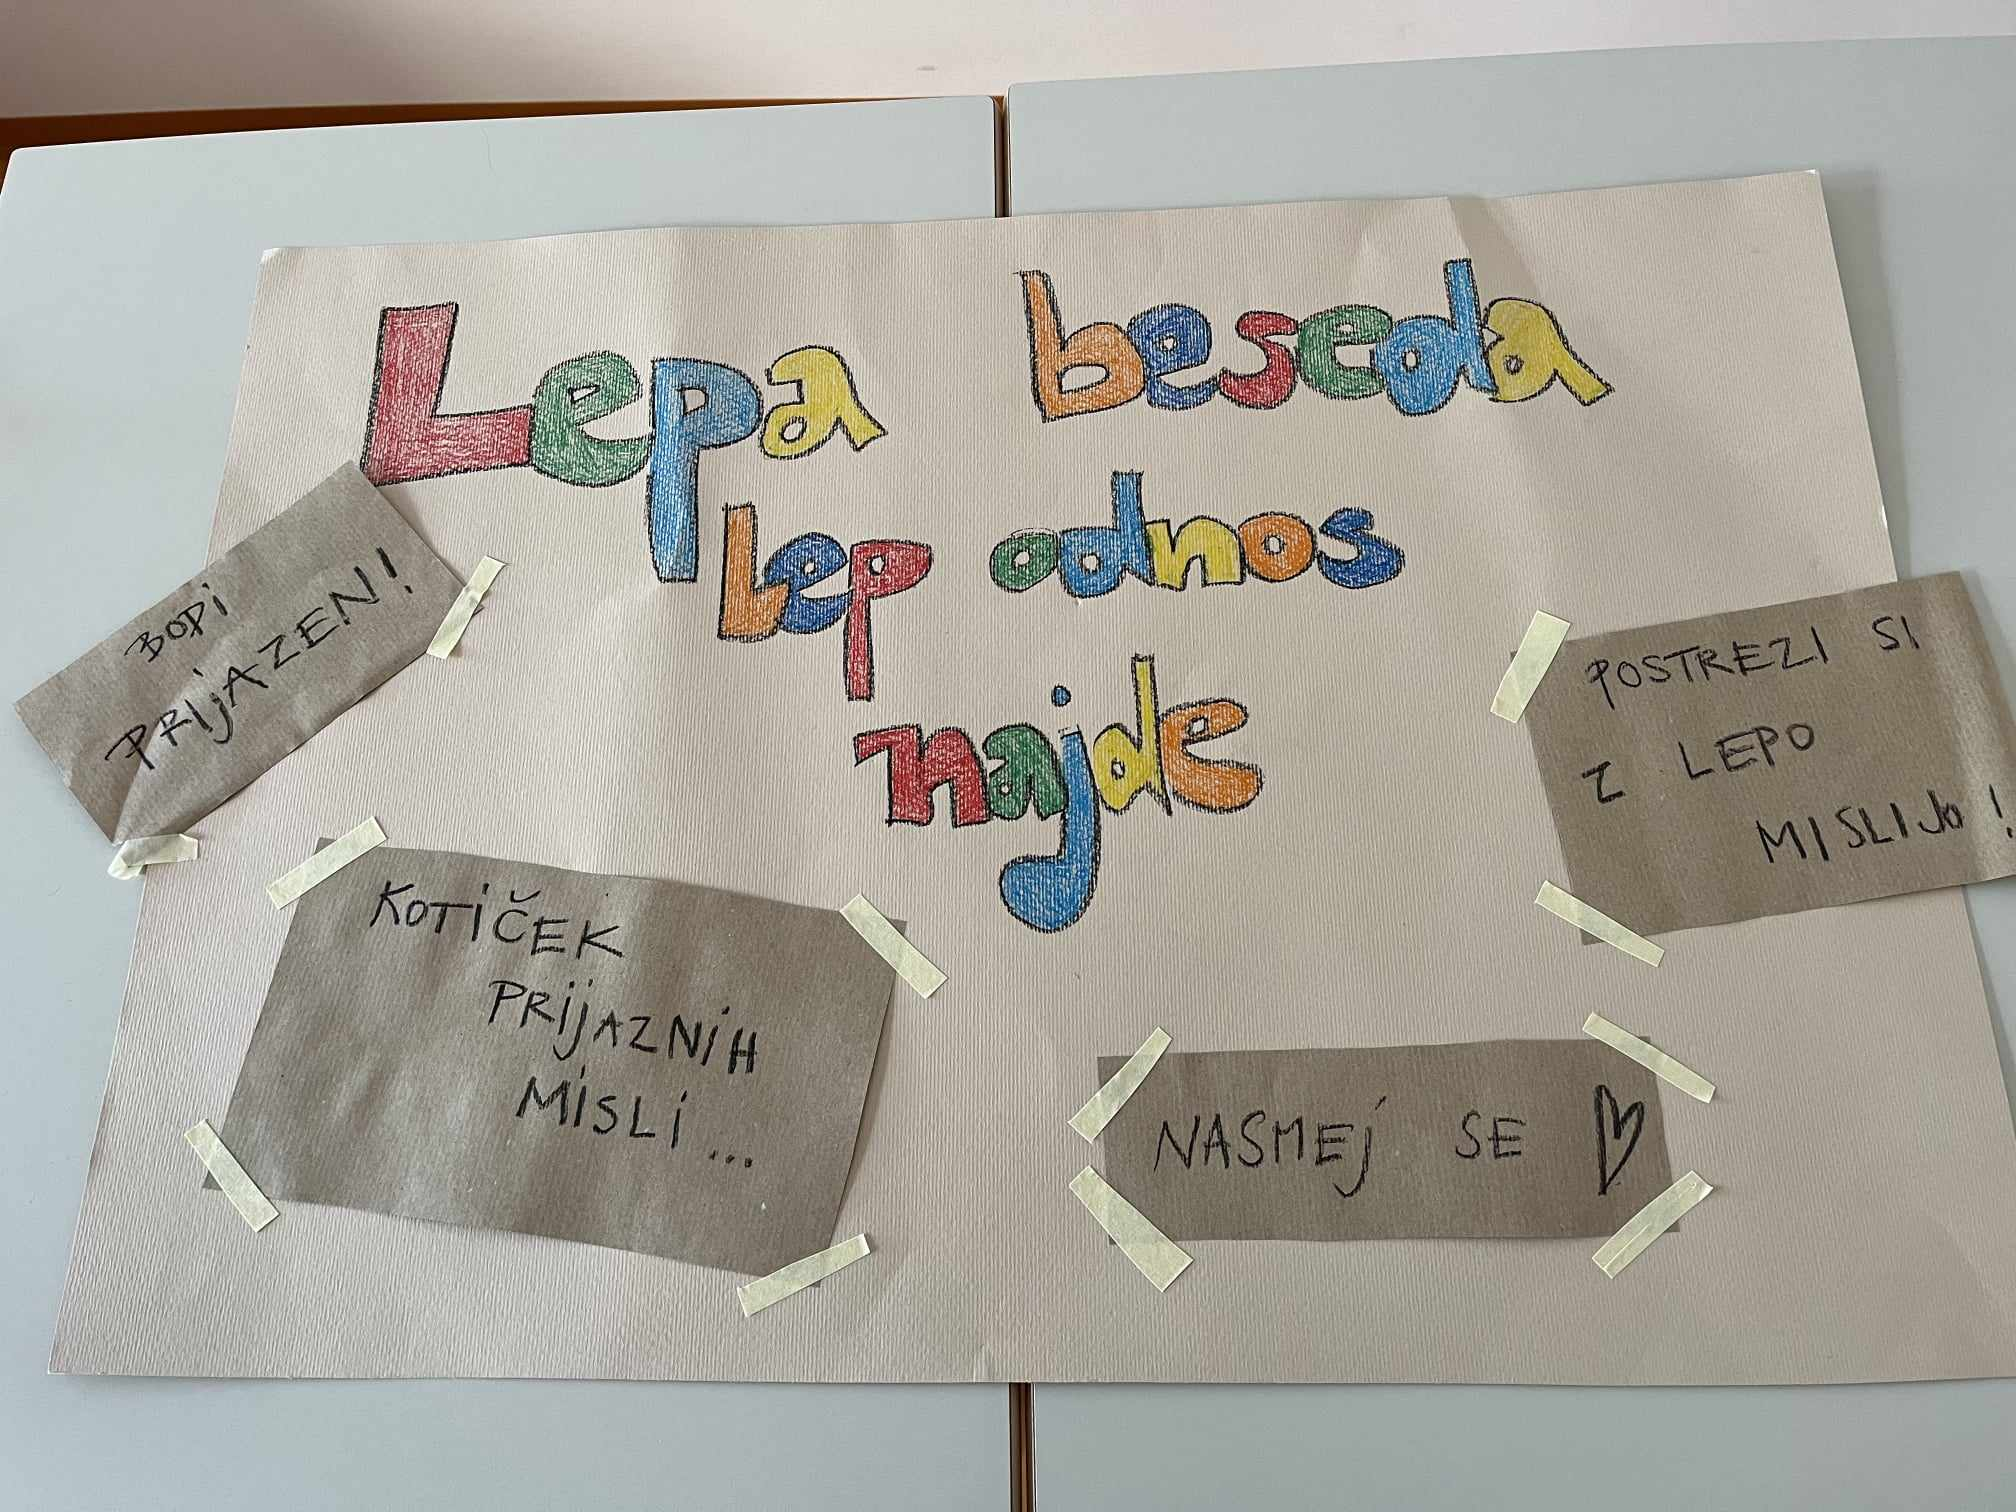 Lepa beseda
lep odnos
najde
BODI
PRIJAZEN!
POSTREZI SI
Z LEPO
MISLIJO!
KOTIČEK
PRIJAZNIH
MISLI...
NASMEJ SE